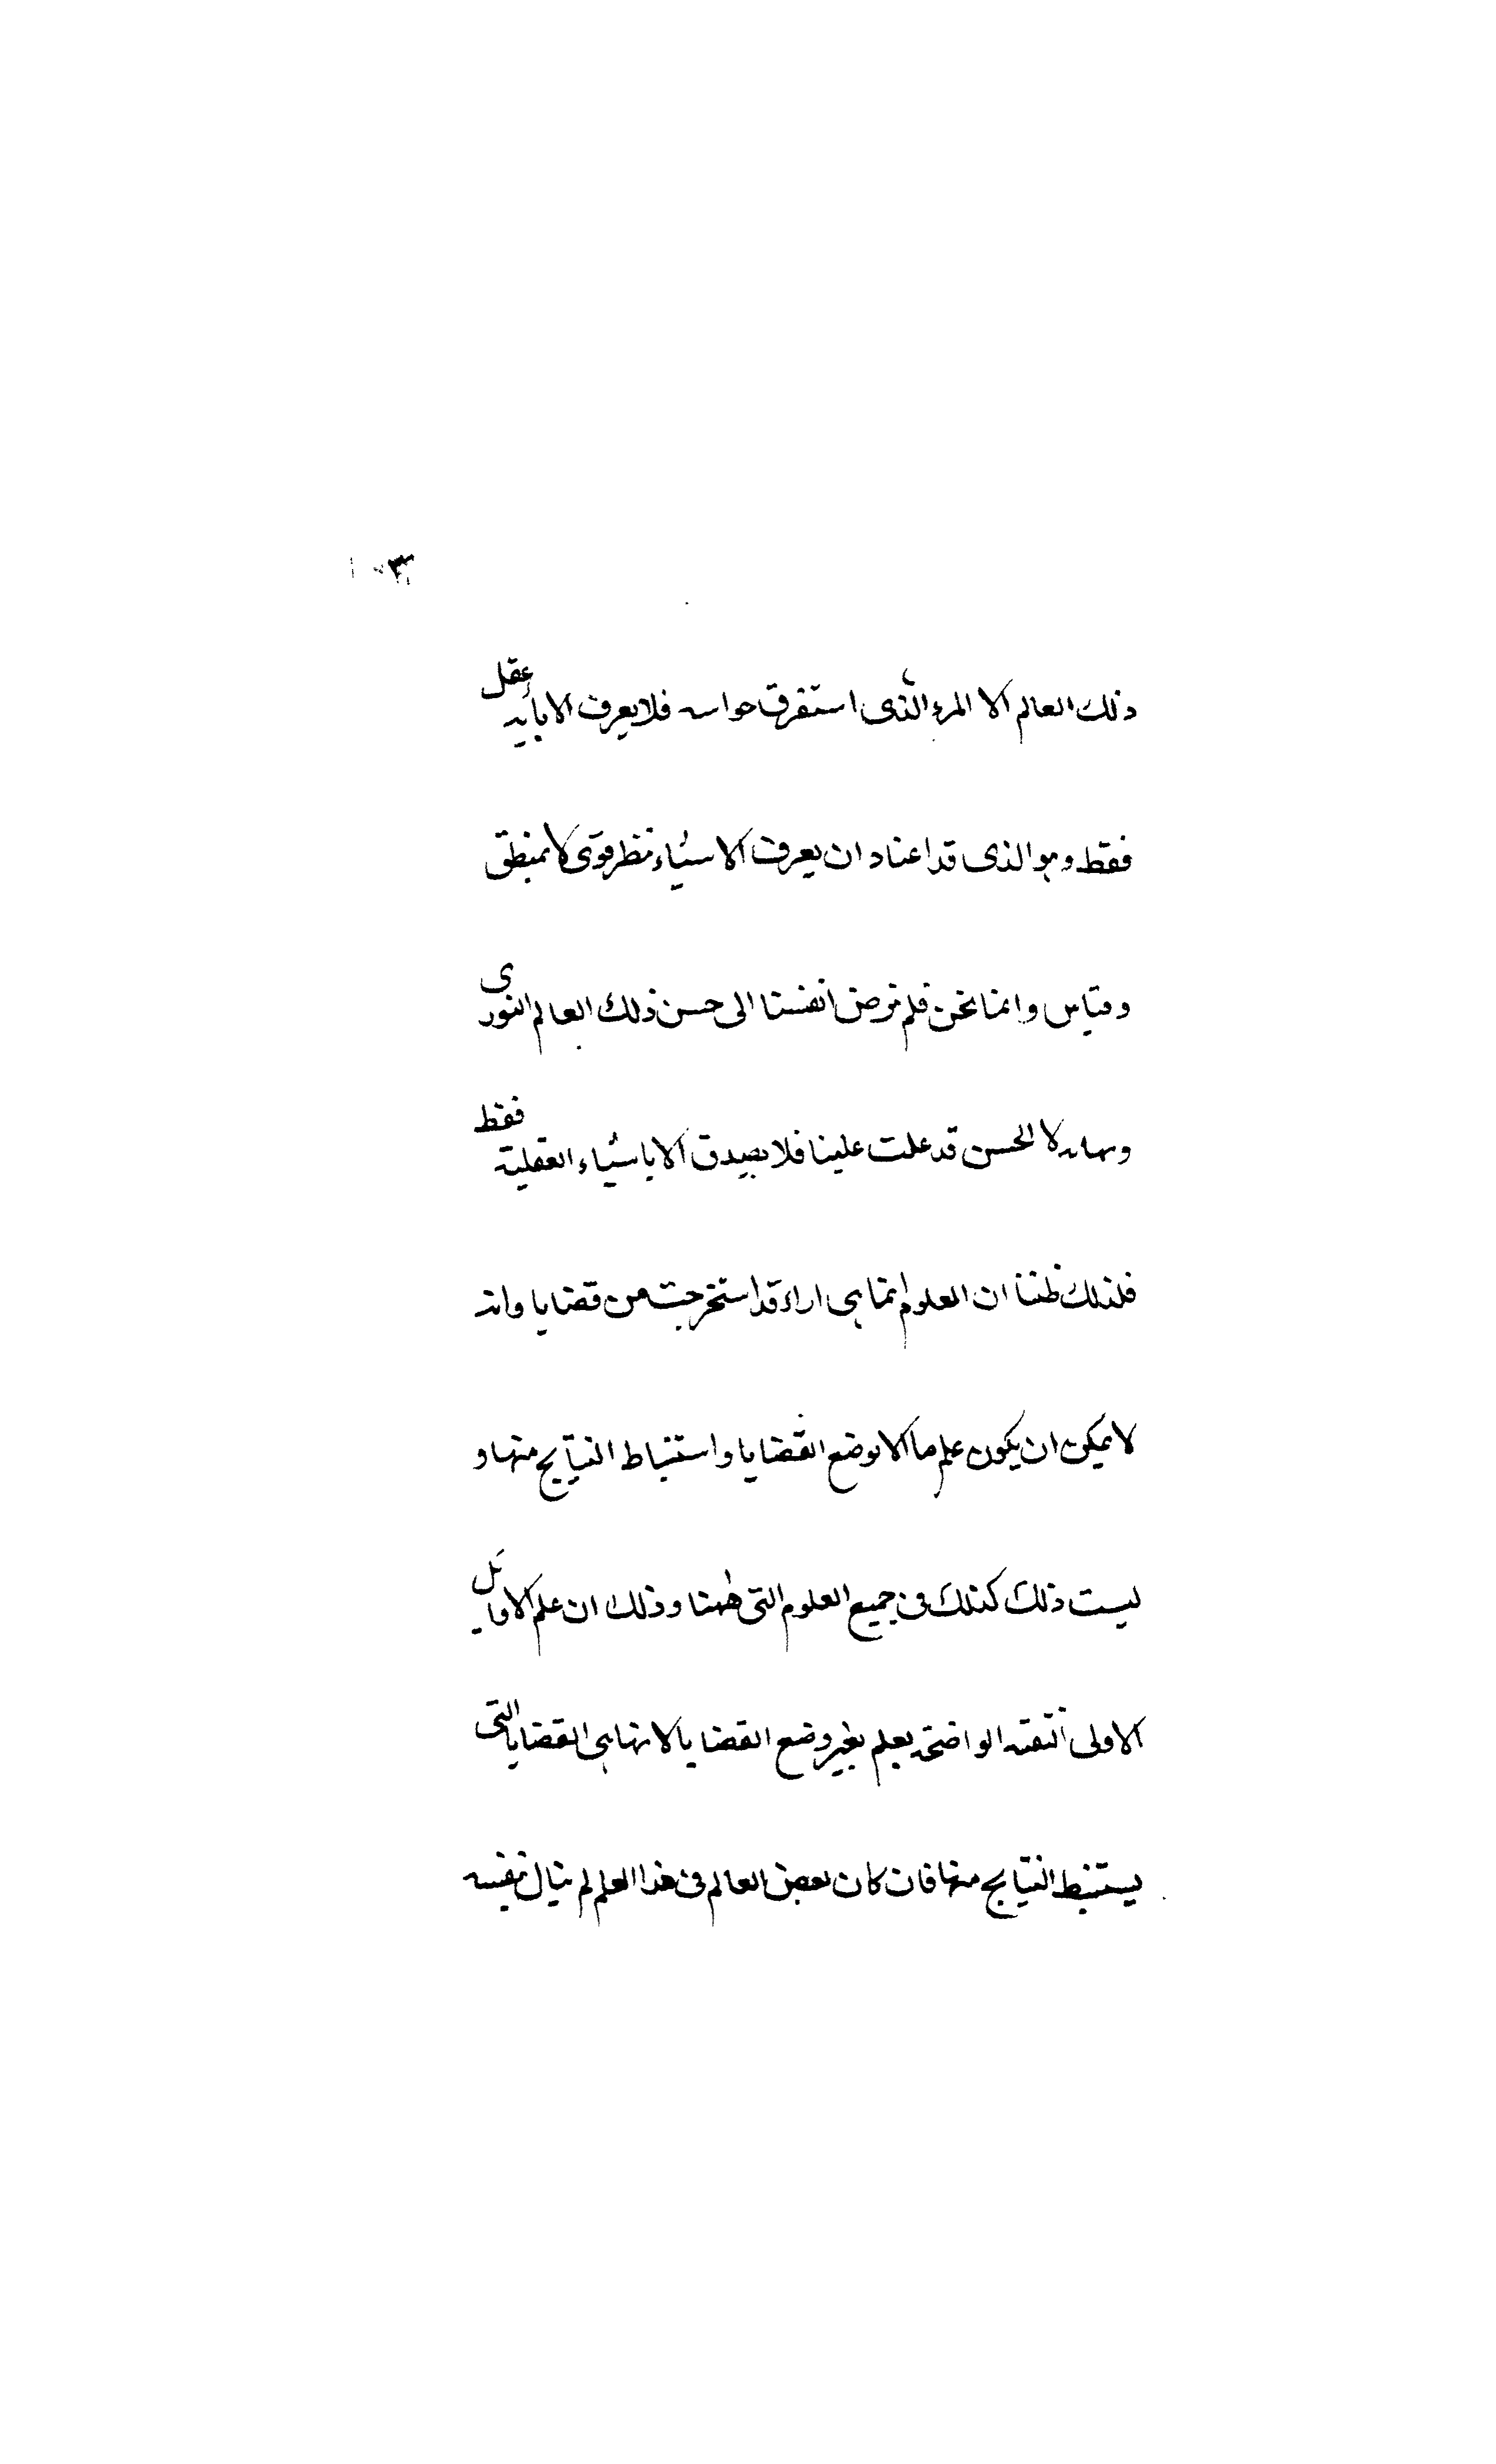 ١٠٣
ذلك العالم الا المرء الذى استغرق حواسه فلا يعرف الا بأيد عقل
فقط وهو الذى قد اعتاد ان يعرف الاشياء بنظر قوى لا بمنطق
وقياس وانما نحن فلم نرض انفسنا الى حسن ذلك العالم النورى
الحسن قد علت علينا فلا يصدق الا باشياء العقلية فقط
فلذلك ظننا ان العلوم انما هى اراء قد استخرجت من قضايا وانه
لا يمكن ان يكون علم ما الا بوضع القضايا واستنباط النتايج منها و
ليست ذلك كذلك فى جميع العلوم التى ههنا وذلك ان علم الاوايل
الاولى النقيه الواضحة يعلم بغير وضع القضايا لانها هى القضايا التى
يستنبط النتايج منها فان كان بعض العالم فى هذا العلم لم ينال بنفسه